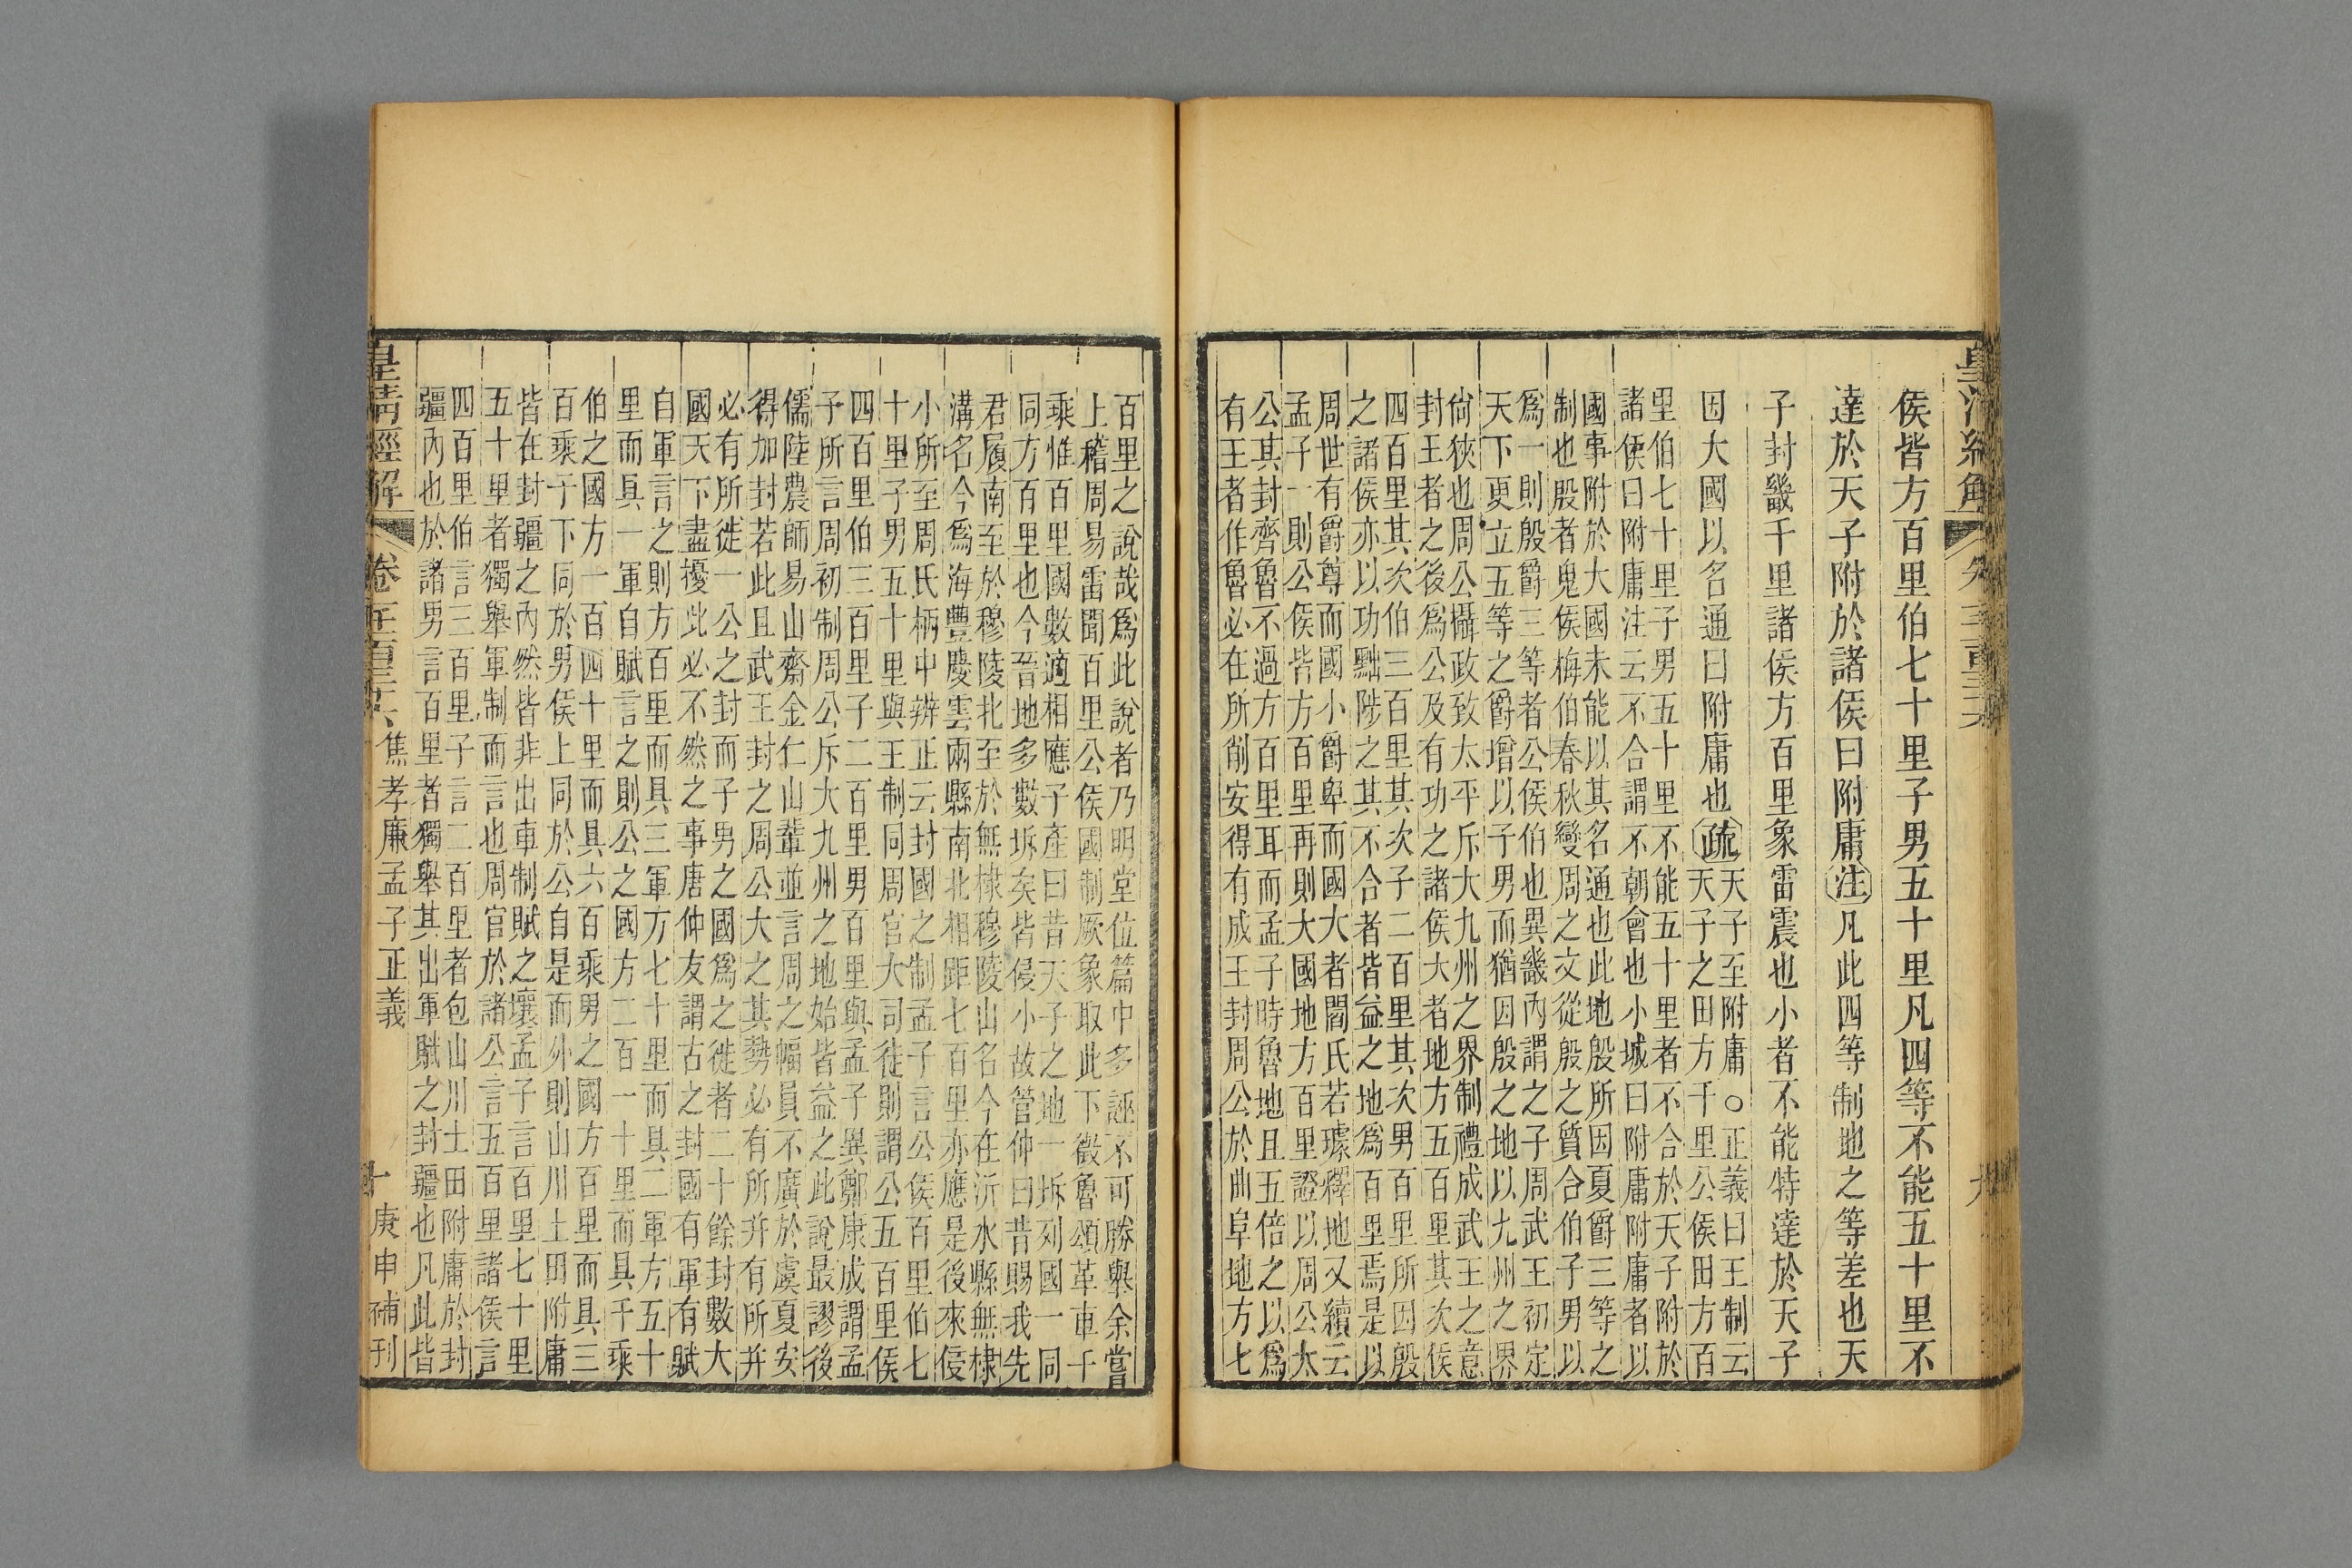 皇清經解
侯皆方百里伯七十里子男五十里凡四等不能五十里不
達於天子附於諸侯曰附庸注凡此四等制地之等差也天
子封畿千里諸侯方百里象雷震也小者不能特達於天子
因大國以名通曰附庸也疏
天子至附庸○正義曰王制云
天子之田方千里公侯田方百
里伯七十里子男五十里不能五十里者不合於天子附於
諸侯曰附庸注云不合謂不朝會也小城曰附庸附庸者以
國事附於大國未能以其名通也此地殷所因夏爵三等之
制也殷者鬼侯梅伯春秋變周之文從殷之質合伯子男以
爲一則殷爵三等者公侯伯也異畿內謂之子周武王初定
天下更立五等之爵增以子男而猶因殷之地以九州之界
尙狹也周公攝政致太平斥大九州之界制禮成武王之意
封王者之後爲公及有功之諸侯大者地方五百里其次侯
四百里其次伯三百里其次子二百里其次男百里所因殷
之諸侯亦以功黜陟之其不合者皆益之地爲百里焉是以
周世有爵尊而國小爵卑而國大者閻氏若璩釋地又續云
孟子一則公侯皆方百里再則大國地方百里證以周公太
公其封齊魯不過方百里耳而孟子時魯地且五倍之以爲
有王者作魯必在所削安得有成王封周公於曲阜地方七
百里之說哉爲此說者乃明堂位篇中多誣不可勝舉余嘗
上稽周易雷聞百里公侯國制厥象取此下徵魯頌革車千
乘惟百里國數適相應子產曰昔天子之地一圻列國一同
同方百里也今晉地多數圻矣皆侵小故管仲曰昔賜我先
君履南至於穆陵北至於無棣穆陵山名今在沂水縣無棣
溝名今爲海豐慶雲兩縣南北相距七百里亦應是後來侵
小所至周氏柄中辨正云封國之制孟子言公侯百里伯七
十里子男五十里與王制同周官大司徒則謂公五百里侯
四百里伯三百里子二百里男百里與孟子異鄭康成謂孟
子所言周初制周公斥大九州之地始皆益之此說最謬後
儒陸農師易山齋金仁山輩並言周之幅員不廣於虞夏安
得加封若此且武王封之周公大之其勢必有所并有所并
必有所徙一公之封而子男之國爲之徙者二十餘封數大
國天下盡擾此必不然之事唐仲友謂古之封國有軍有賦
自軍言之則方百里而具三軍方七十里而具二軍方五十
里而具一軍自賦言之則公之國方二百一十里而具千乘
伯之國方一百四十里而具六百乘男之國方百里而具三
百乘于下同於男侯上同於公自是而外則山川土田附庸
皆在封疆之內然皆非出車制賦之壤孟子言百里七十里
五十里者獨舉軍制而言也周官於諸公言五百里諸侯言
四百里伯言三百里子言二百里者包山川土田附庸於封
疆內也於諸男言百里者獨舉其出軍賦之封疆也凡此皆
皇清經解 焦孝廉孟子正義 十 庚申補刊